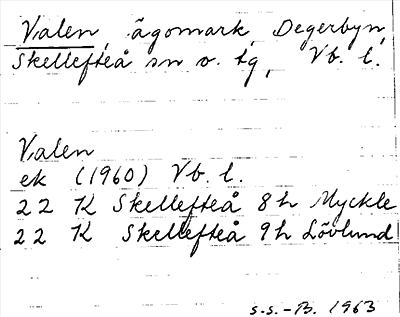 Valen, ägomark, Degerbyn,
Skellefteå sn o. tg, Vb. l.
Valen
ek (1960) Vb. l.
22 K Skellefteå 8h Myckle
22 K Skellefteå 9h Lövlund
s.s.-B. 1963